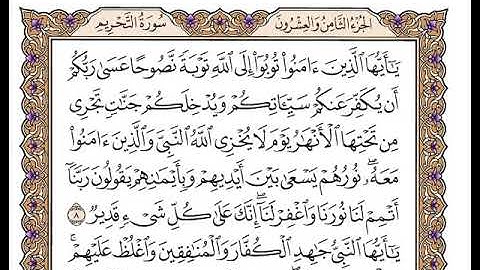 سُورَةُ التَّحْرِيمِ الجُزْءُ الثَّامِنُ وَالعِشْرُونَ
يَٰٓأَيُّهَا ٱلَّذِينَ ءَامَنُوا۟ تُوبُوٓا۟ إِلَى ٱللَّهِ تَوْبَةً نَّصُوحًا عَسَىٰ رَبُّكُمْ
أَن يُكَفِّرَ عَنكُمْ سَيِّـَٔاتِكُمْ وَيُدْخِلَكُمْ جَنَّٰتٍ تَجْرِى
مِن تَحْتِهَا ٱلْأَنْهَٰرُ يَوْمَ لَا يُخْزِى ٱللَّهُ ٱلنَّبِىَّ وَٱلَّذِينَ ءَامَنُوا۟
مَعَهُۥۖ نُورُهُمْ يَسْعَىٰ بَيْنَ أَيْدِيهِمْ وَبِأَيْمَٰنِهِمْ يَقُولُونَ رَبَّنَآ
أَتْمِمْ لَنَا نُورَنَا وَٱغْفِرْ لَنَآۖ إِنَّكَ عَلَىٰ كُلِّ شَىْءٍ قَدِيرٌ ٨
يَٰٓأَيُّهَا ٱلنَّبِىُّ جَٰهِدِ ٱلْكُفَّارَ وَٱلْمُنَٰفِقِينَ وَٱغْلُظْ عَلَيْهِمْۚ